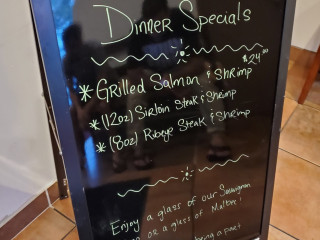 Dinner Specials
$24.00
* Grilled Salmon & Shrimp
* (12oz) Sirloin Steak & Shrimp
* (8oz) Ribeye Steak & Shrimp
Enjoy a glass of our Sauvignon
or a glass of Malbec!
being a part